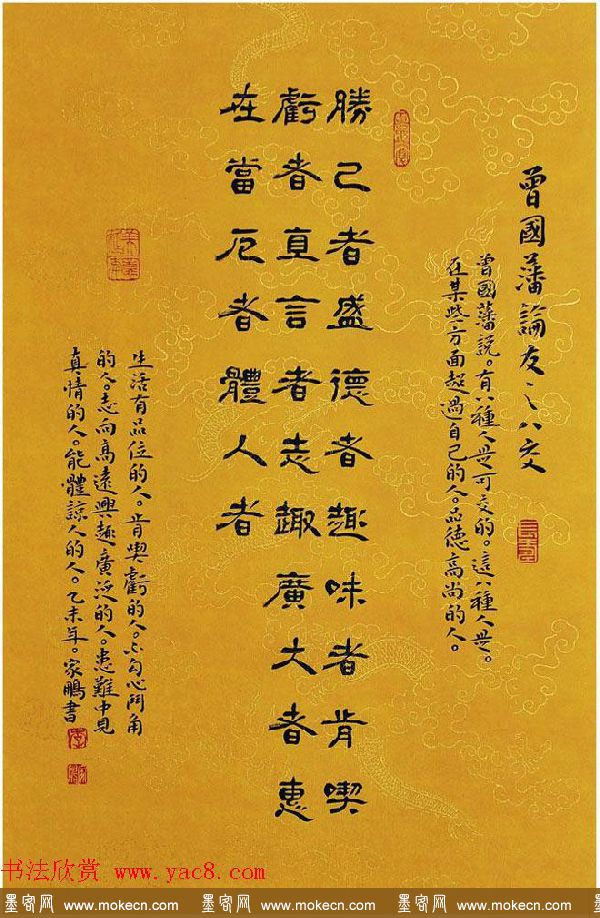 曾國藩論友之八交
曾國藩說。有八種人是可交的。這八種人是。
在某些方面超過自己的人。品德高尚的人。
勝己者盛德者趣味者肯喫
虧者直言者志趣廣大者惠
在當厄者體人者
生活有品位的人。肯喫虧的人。不勾心鬥角
的人。志向高遠興趣廣泛的人。患難中見
真情的人。能體諒人的人。乙未年。家鵬書
书法欣赏 www.yac8.com
墨客网 www.mokecn.com 墨客网 www.mokecn.com 墨客网 www.mokecn.com